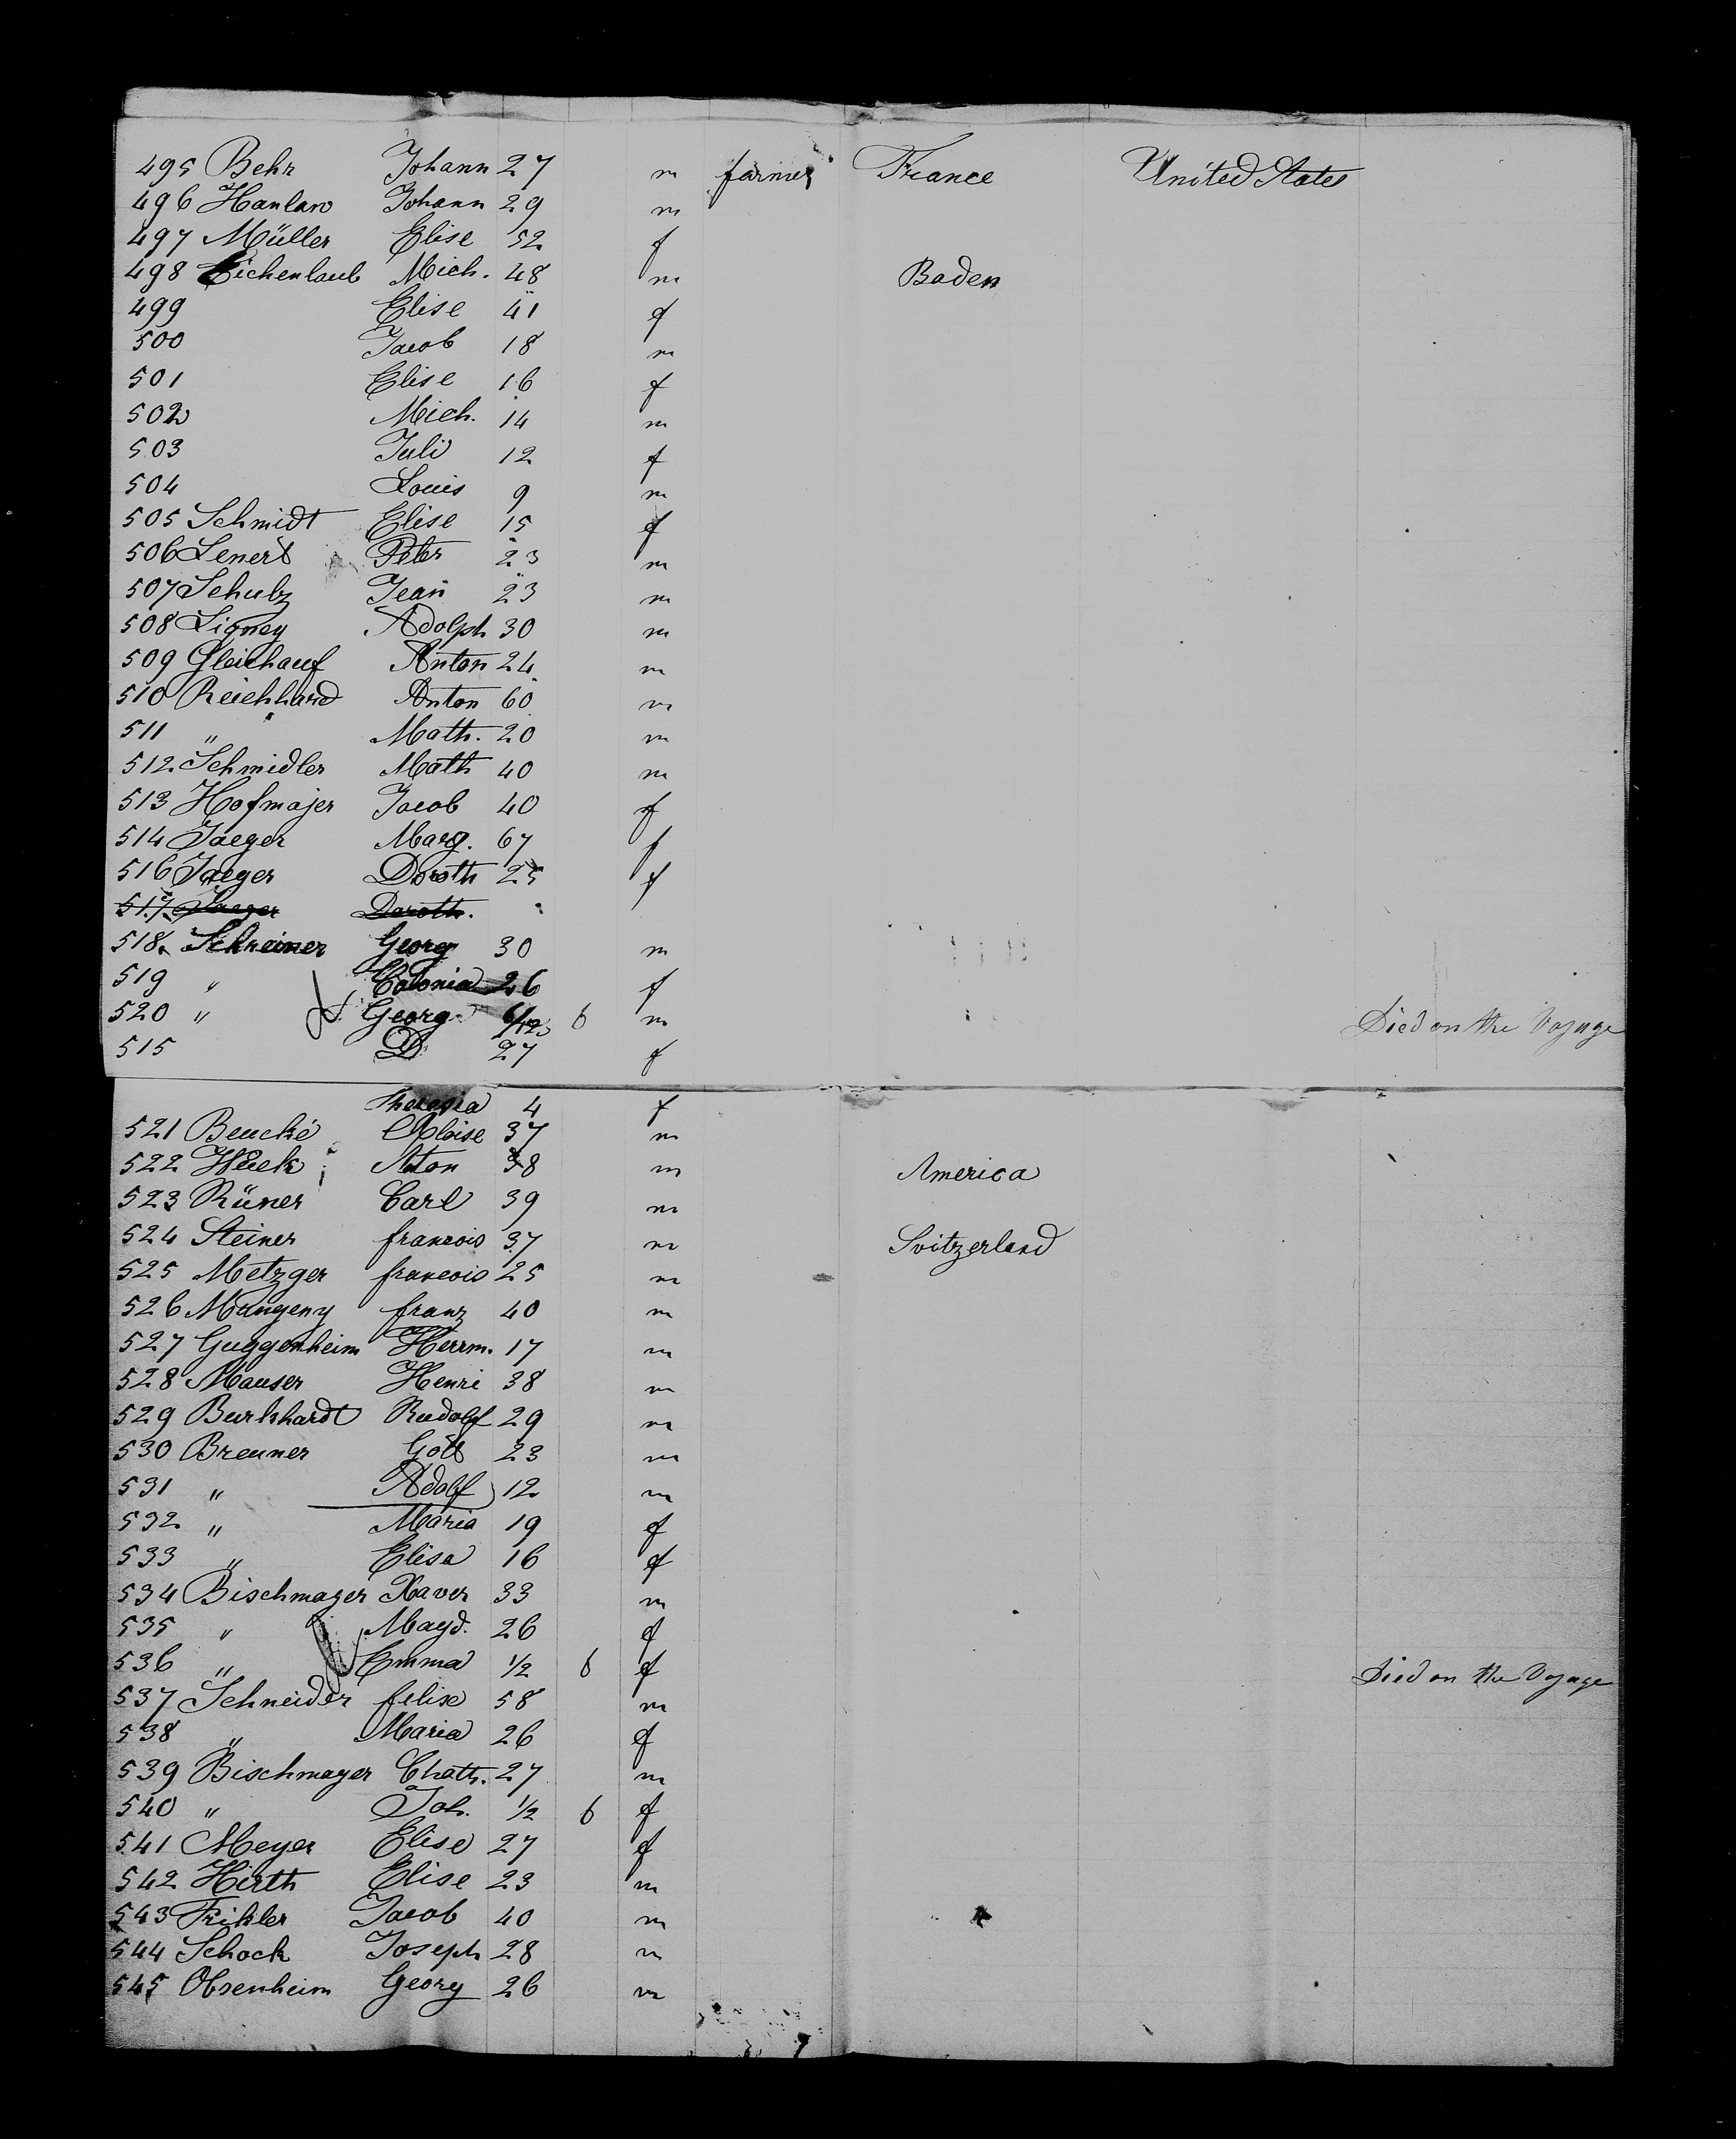 495 Behr Johann 27 m farmer France United States
496 Hanlaw Johann 29 m
497 Müller Elise 52 f
498 Eichenlaub Mich. 48 m Baden
499 Elise 41 f
500 Jacob 18 m
501 Elise 16 f
502 Mich. 14 m
503 Juli 12 f
504 Louis 9 m
505 Schmidt Elise 15 f
506 Lenert Peter 23 m
507 Schulz Jean 23 m
508 Ligney Adolph 30 m
509 Gleichauf Anton 24 m
510 Reichhard Anton 60 m
511 " Math. 20 m
512 Schmidler Math 40 m
513 Hofmajer Jacob 40 f
514 Jaeger Marg. 67 f
516 Jaeger Doroth 25 f
517 Jaeger Doroth.
518 Schreiner Georg 30 m
519 " 26 f
520 " Georg 6/12 6 m Died on the Voyage
515 D 27 f
Theresia 4 f
521 Beucké Aloise 37 m
522 Hueck Aton 38 m America
523 Rüner Carl 39 m
524 Steiner francois 37 m Svitzerland
525 Metzger francois 25 m
526 Mangeny franz 40 m
527 Guggenheim Herrm. 17 m
528 Mauser Henri 38 m
529 Burkhardt Rudolf 29 m
530 Breuner Gott 23 m
531 " Adolf 12 m
532 " Maria 19 f
533 " Elisa 16 f
534 Bischmager Xaver 33 m
535 " Magd. 26 f
536 " Emma 1/2 6 f Died on the Voyage
537 Schneider felix 58 m
538 " Maria 26 f
539 Bischmager Chath. 27 m
540 " Joh. 1/2 6 f
541 Meyer Elise 27 f
542 Hirth Elise 23 m
543 Frikler Jacob 40 m
544 Schock Joseph 28 m
545 Obsenheim Georg 26 m